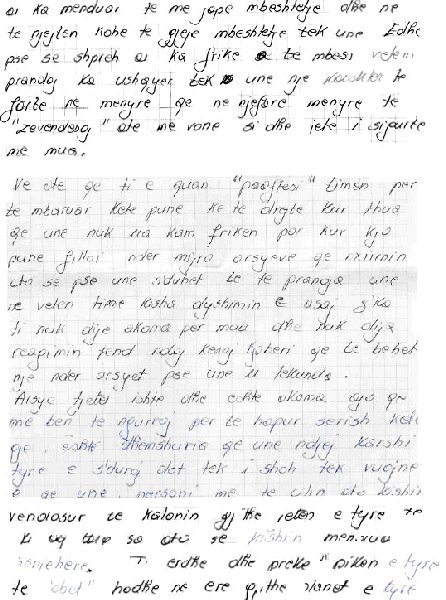 ai ka menduar te me jape mbeshtetje dhe ne
te njejten kohe te gjeje mbeshtetje tek une Edhe
pse se shpreh ai ka frike te mbesi vetem
prandaj ka ushqyer tek une nje te
forte ne menyre qe ne njefare menyre te
"zevendesoj" ate me vone si dhe jete i sigurte
me mua.
Ve ate qe ti e quan "paaftesi" timen per
te mbaruar kete pune ke te drejte kur thua
qe une nuk ua kam friken por kur kjo
pune filloi nder mijra arsyeve qe
pse une te te pranoja une
ne veten time kisha dyshimin e asaj
ti nuk dije akoma per mua dhe nuk dija
reagimin tend ndaj kesaj qe te behet
nje nder arsyet pse une u tekunda.
Arsye tjeter ishte dhe edhe akoma ajo qe
me ben te ngurroj per te hapur serish kete
gje, eshte dhemshuria qe une ndjej karshi
tyre e s'duroj dot tek i shoh tek vuajne
e qe une, personi me te cilin ato kishin
vendosur te kalonin gjithe jeten e tyre te
ato se kishin menduar
ndonjehere. Ti erdhe dhe preke "piken e tyre
te "obel" hodhe ne ere gjithe e tyre